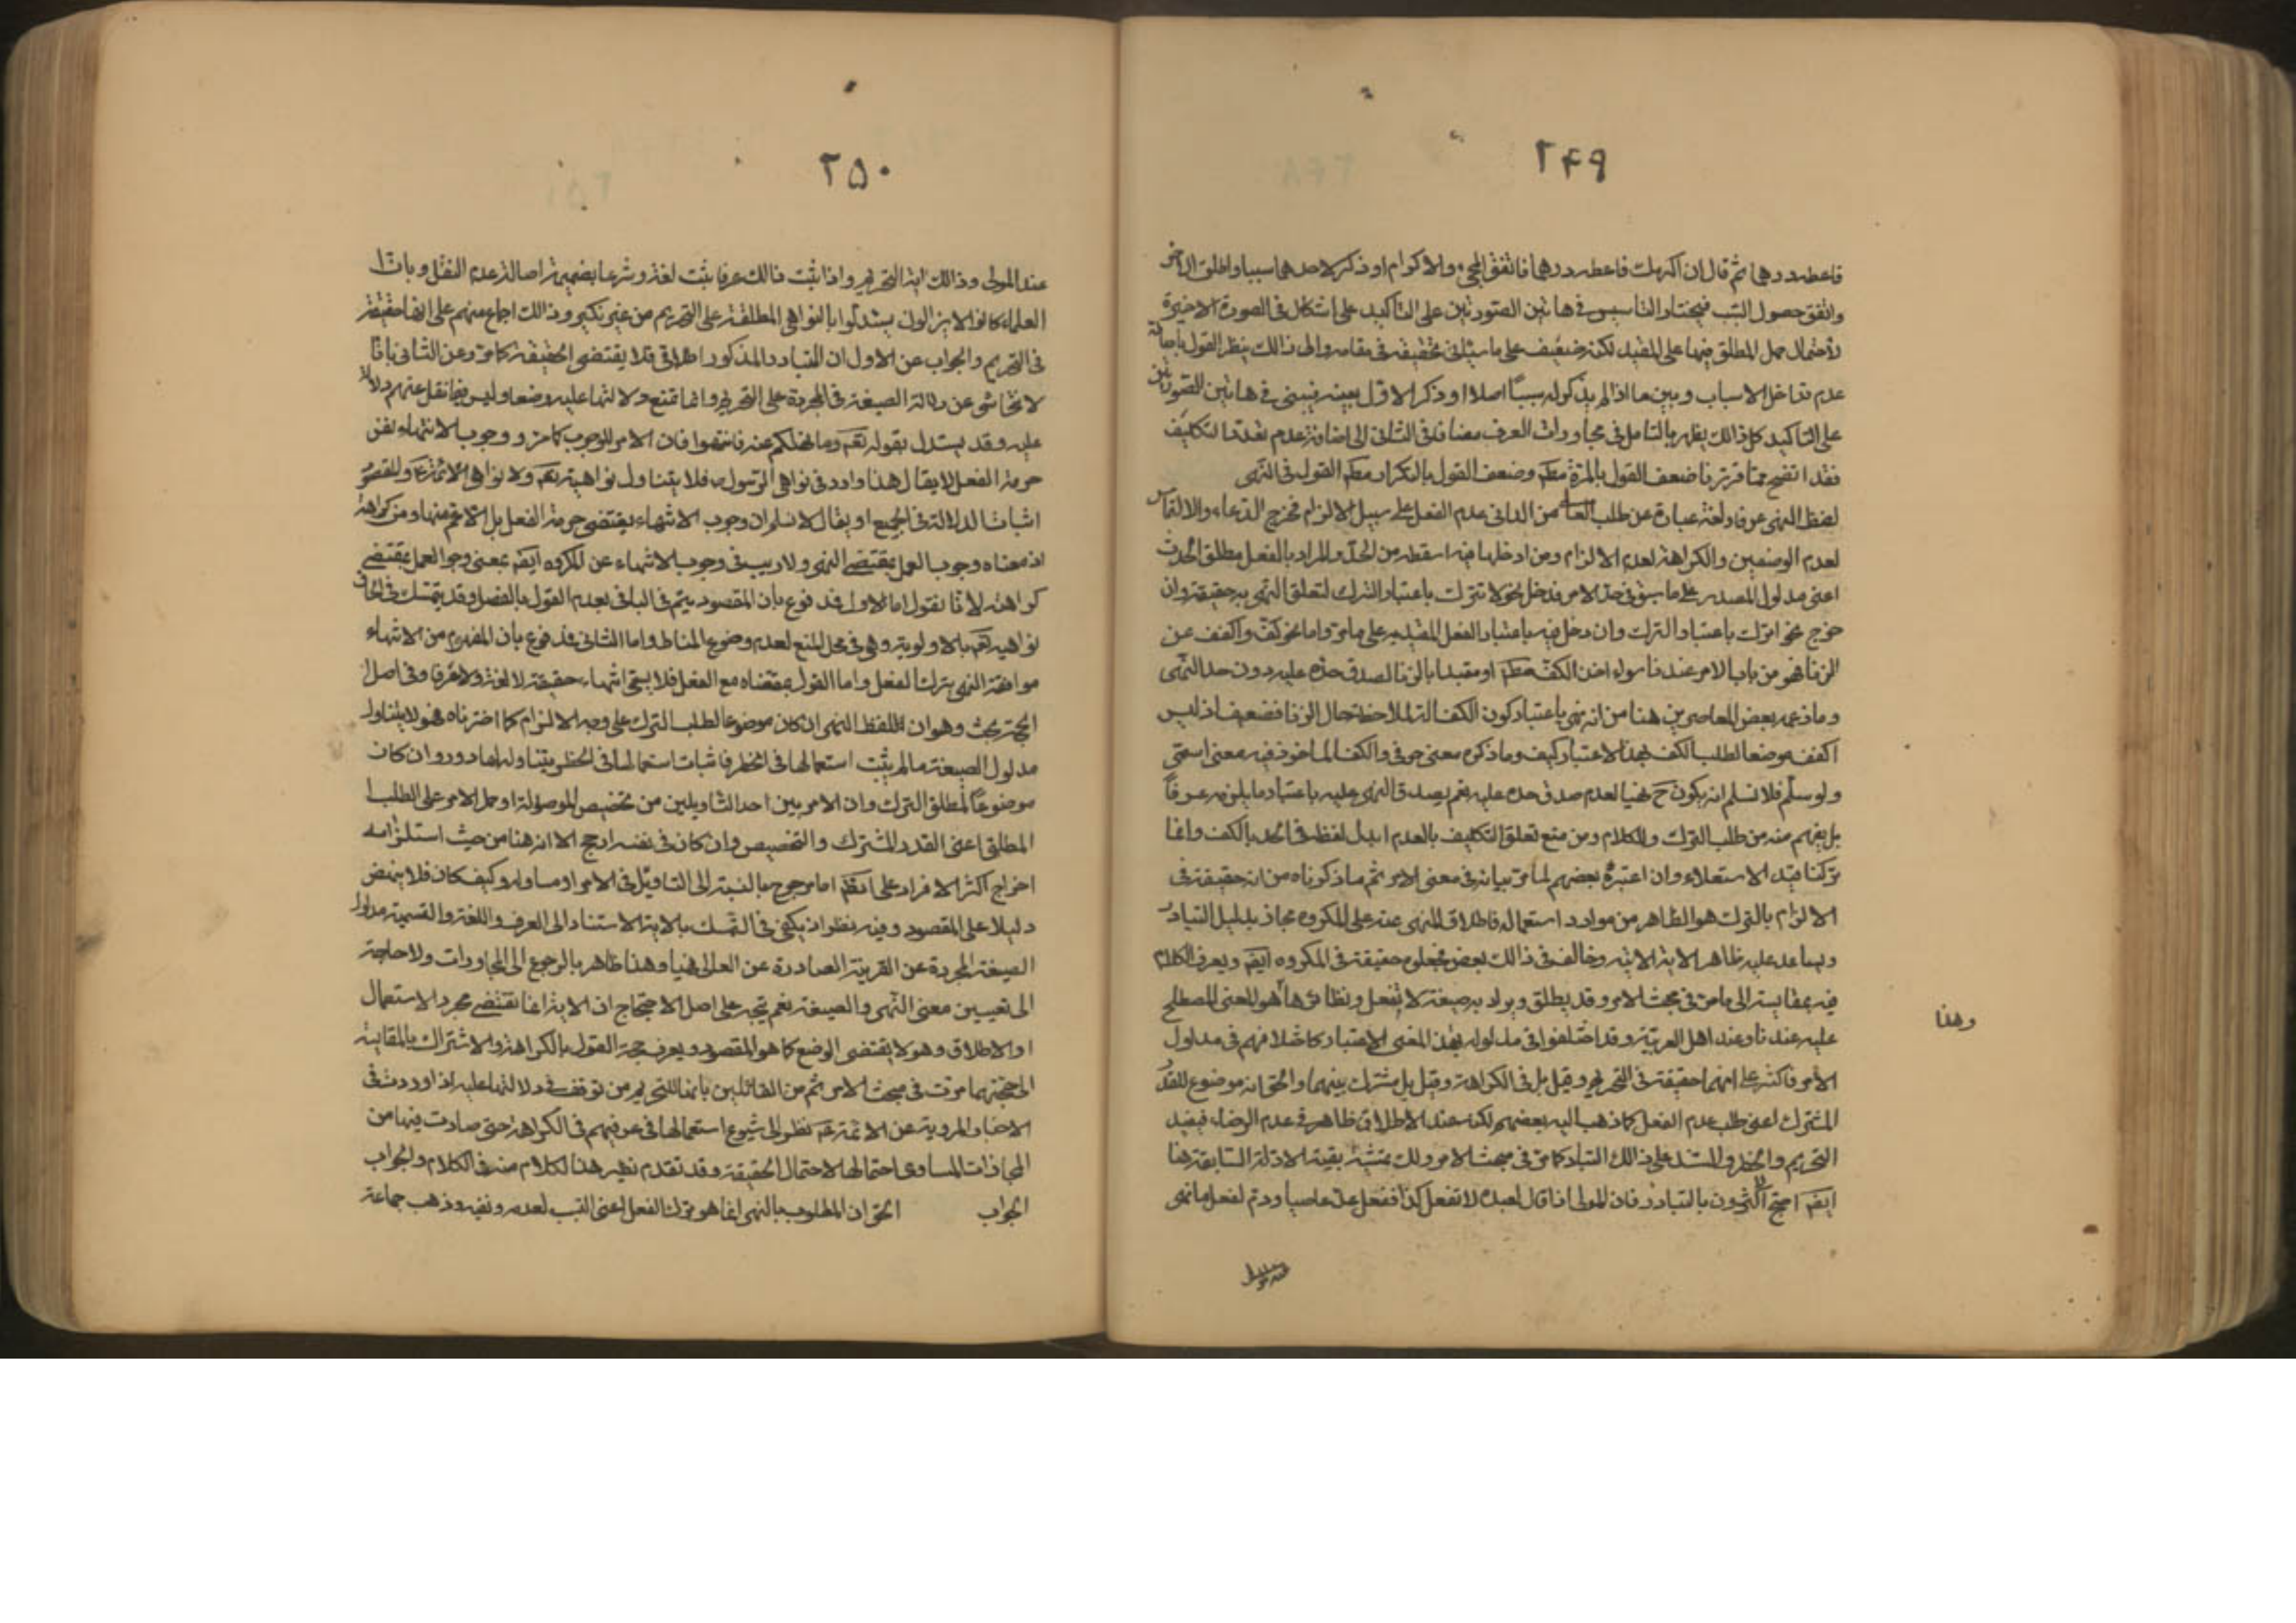 ٢٤٩
فاعطه درهما ثم قال ان اكرمك فاعطه درهما فاتفق المجيء والاكرام او ذكر لاحدهما سببا واطلق الاخر
واتفق حصول السبب فيختار التاسيس في هاتين الصورتين على التاكيد على اشكال في الصورة الاخيرة
لاحتمال حمل المطلق فيها على المقيد لكنه ضعيف على ما سيأتى تحقيقه في مقامه والى ذلك ينظر القول باصالة
عدم تداخل الاسباب وبين ما اذا لم يذكر له سببا اصلا او ذكر الاول بعينه فيبنى في هاتين الصورتين
على التاكيد كل ذلك يظهر بالتامل في محاورات العرف مضافا في الثانى الى اصالة عدم تعدد التكليف
فقد اتضح مما قررنا ضعف القول بالمرة مطم وضعف القول بالتكرار مطم القول في النهى
لفظ النهى عرفا ولغة عبارة عن طلب العالى من الدانى عدم الفعل على سبيل الالزام فخرج الدعاء والالتماس
لعدم الوصفين والكراهة لعدم الالزام ومن ادخلها فيه اسقطه من الحد والمراد بالفعل مطلق الحدث
اعنى مدلول المصدر على ما سبق في حد الامر فدخل نحو لا تترك باعتبار الترك لتعلق النهى به حقيقة وان
خرج نحو اترك باعتبار الترك وان دخل فيه باعتبار الفعل المقيد به على ما مر واما نحو كف واكفف عن
الزنا فهو من باب الامر عندنا سواء اخذ الكف مطم او مقيدا بالزنا لصدق حده عليه دون حد النهى
وما زعمه بعض المعاصرين هنا من انه نهى باعتبار كون الكف الة لملاحظة حال الزنا فضعيف اذ ليس
اكفف موضعا لطلب الكف بهذا الاعتبار كيف وما ذكره معنى حرفى والكف الماخوذ فيه معنى اسمى
ولو سلم فلا نسلم انه يكون ح نهيا لعدم صدق حده عليه نعم يصدق النهى عليه باعتبار ما يلزمه عرفا
بل يفهم منه من طلب الترك والكلام ومن منع تعلق التكليف بالعدم ابدل لفظه في الحد بالكف وانما
تركنا قيد الاستعلاء وان اعتبره بعضهم لما مر بيانه في معنى الامر ثم ما ذكرناه من انه حقيقة في
الالزام بالترك هو الظاهر من موارد استعماله فاطلاق النهى عنه على المكروه مجاز بدليل التبادر
ويساعد عليه ظاهر الاية الاتية وخالف في ذلك بعض فجعله حقيقة في المكروه ايضم ويعرف الكلام
فيه بمقايسته الى ما مر في مبحث الامر وقد يطلق ويراد به صيغة لا تفعل ونظائرها وهو المعنى المصطلح
وهذا
عليه عندنا وعند اهل العربية وقد اختلفوا في مدلوله بهذا المعنى الاعتبار كاختلافهم في مدلول
الامر فاكثر على انها حقيقة في التحريم وقيل بل في الكراهة وقيل بل مشترك بينهما والحق انه موضوع للقدر
المشترك اعنى طلب عدم الفعل كما ذهب اليه بعضهم لكنه عند الاطلاق ظاهر في عدم الرضا، فيفيد
التحريم والحظر والمستند على ذلك التبادر كما مر في مبحث الامر ولك تمشية بقية الادلة السابقة هنا
ايضم احتج الاكثرون بالتبادر فان المولى اذا قال لعبده لا تفعل كذا ففعل عد عاصيا وذم لفعله ما نهى
٢٥٠
عند المولى وذلك اية التحريم واذا ثبت ذلك عرفا ثبت لغة وشرعا بضميمة اصالة عدم النقل وبان
العلماء كانوا لا يزالون يستدلوا بالنواهى المطلقة على التحريم من غير نكير وذلك اجماع منهم على انها حقيقة
في التحريم والجواب عن الاول ان التبادر المذكور اطلاقى فلا يقتضى الحقيقة كما مر وعن الثانى بانا
لا نتحاشى عن دلالة الصيغة المجردة على التحريم وانما نمنع دلالتها عليه وضعا وليس فيما نقل عنهم دلالة
عليه وقد يستدل بقوله تعم وما نهيكم عنه فانتهوا فان الامر للوجوب كما مر ووجوب الانتهاء يقتضى
حرمة الفعل لا يقال هذا وارد في نواهى الرسول ص فلا يتناول نواهيه تعم ولا نواهى الائمة ع والمقصود
اثبات الدلالة في الجميع او يقال لا نسلم ان وجوب الانتهاء يقتضى حرمة الفعل بل الاعم منها ومن كراهته
اذ معناه وجوب العمل بمقتضى النهى ولا ريب في وجوب الانتهاء عن المكروه ايضم بمعنى وجوب العمل بمقتضى
كراهته لانا نقول اما الاول فمدفوع بان المقصود يتم في الباقى بعدم القول بالفصل وقد يتمسك في الحاق
نواهيه تعم بالاولوية وهى في محل المنع لعدم وضوع المناط واما الثانى فمدفوع بان المفهوم من الانتهاء
موافقة النهى بترك الفعل واما القول بمقتضاه مع الفعل فلا يسمى انتهاء حقيقة لا لغة ولا عرفا وفى اصل
الحجة بحث وهو ان لفظ النهى ان كان موضوعا لطلب الترك على وجه الالزام كما اخترناه فهو لا يتناول
مدلول الصيغة ما لم يثبت استعمالها في الحظر فاثبات استعمالها في الحظر بتناوله لها دور وان كان
موضوعا لمطلق الترك وان الامر بين احد التاويلين من تخصيص الموصولة او حمل الامر على الطلب
المطلق اعنى القدر المشترك والتخصيص وان كان في نفسه ارجح الا انه هنا من حيث استلزامه
اخراج اكثر الافراد على انضم اما مرجوح بالنسبة الى التاويل في الامر او مساو له وكيف كان فلا ينهض
دليلا على المقصود وفيه نظر اذ يكفى في التمسك بالاية الاستناد الى العرف واللغة والتسمية مدلول
الصيغة المجردة عن القرينة الصادرة عن العالى نهيا وهذا ظاهر بالرجوع الى المحاورات ولا حاجة
الى تعيين معنى النهى والصيغة نعم يتجه على اصل الاحتجاج ان الاية انما تقتضى مجرد الاستعمال
او الاطلاق وهو لا يقتضى الوضع كما هو المقصود ويعرف حجة القول بالكراهة والاشتراك بالمقايسة
الى حجتهما مرت في مبحث الامر ثم من القائلين بانها للتحريم من توقف في دلالتها عليه اذا وردت في
الاخبار المروية عن الائمة ع نظرا الى شيوع استعمالها في عرفهم في الكراهة حتى صارت فيها من
المجازات المساوى احتمالها لاحتمال الحقيقة وقد تقدم نظير هذا الكلام منه في الكلام والجواب
الجواب الحق ان المطلوب بالنهى انما هو ترك الفعل اعنى التسبب لعدمه ونفيه وذهب جماعة